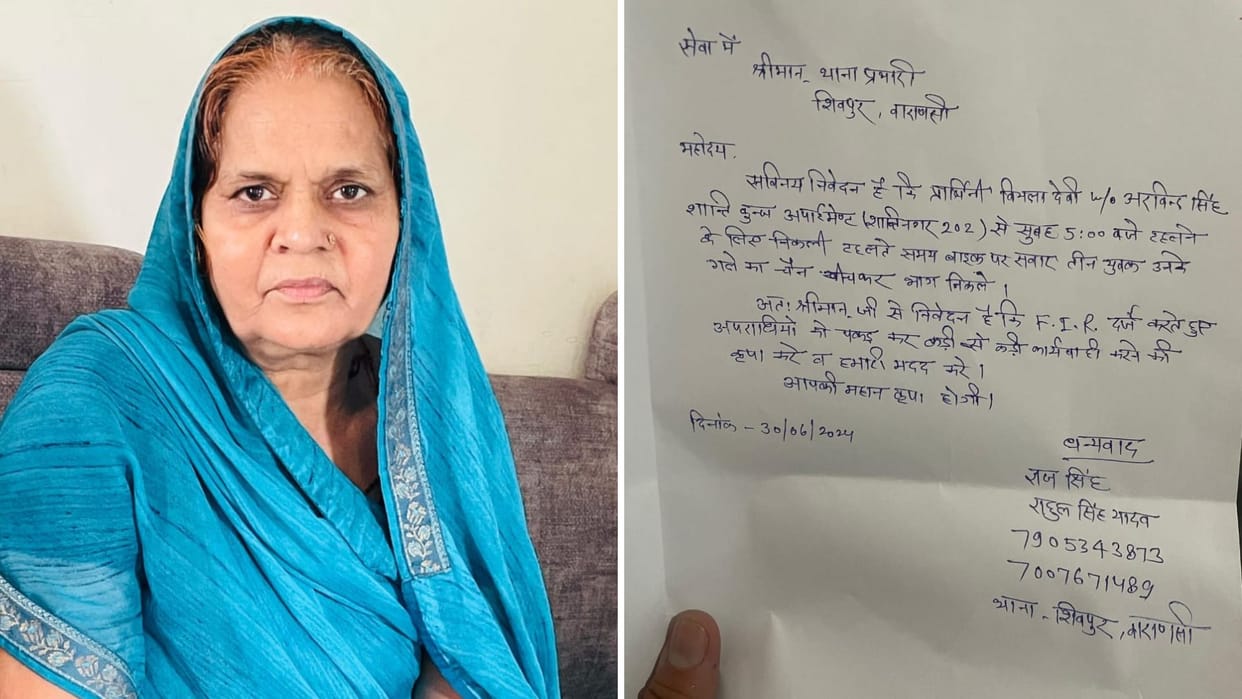 सेवा में
श्रीमान् थाना प्रभारी
शिवपुर, वाराणसी
महोदय,
सविनय निवेदन है कि प्रार्थिनी विमला देवी W/o अरविन्द सिंह
शान्ति कुन्ज अपार्टमेण्ट (शान्तिनगर 202) से सुबह 5:00 बजे टहलने
के लिए निकली टहलते समय बाइक पर सवार तीन युवक उनके
गले का चैन खींचकर भाग निकले।
अतः श्रीमान् जी से निवेदन है कि F.I.R. दर्ज करते हुए
अपराधियों को पकड़ कर कड़ी से कड़ी कार्यवाही करने की
कृपा करे व हमारी मदद करे।
आपकी महान कृपा होगी।
दिनांक - 30/06/2024
धन्यवाद
राज सिंह
राहुल सिंह यादव
7905343873
7007671489
थाना - शिवपुर, वाराणसी